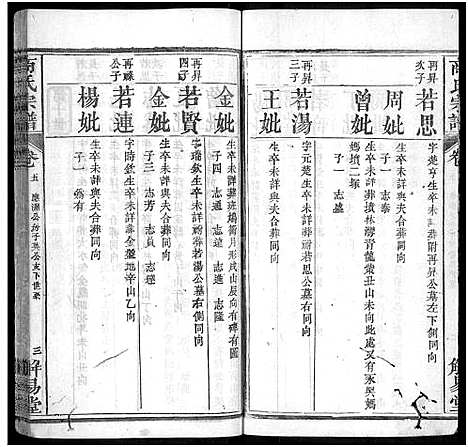 商氏宗譜
再昇次子
若思
字楚亨生卒未詳葬附再昇公墓左側同向
周妣
生卒未詳與夫合葬同向
曾妣
生卒未詳葬
青龍紫丑山未向此處又有
塘墳二塚
子一 志盛
再昇三子
若湯
字元楚生卒未詳祔若思公墓右同向
王妣
生卒未詳與夫合葬同向
金妣
生卒未詳葬班鳩窩月形戌山辰向有碑有圖
子四 志通 志達 志進 志隆
再昇四子
若賢
字瑞欽生卒未詳祔若湯公墓右側同向
金妣
生卒未詳與夫合葬同向
子三 志芳 志員 志達
再祿公子
若連
字時欽生卒未詳葬金盤地辛山乙向
楊妣
生卒未詳與夫合葬同向
子一 為有
商氏宗譜
卷
五
三
解易堂